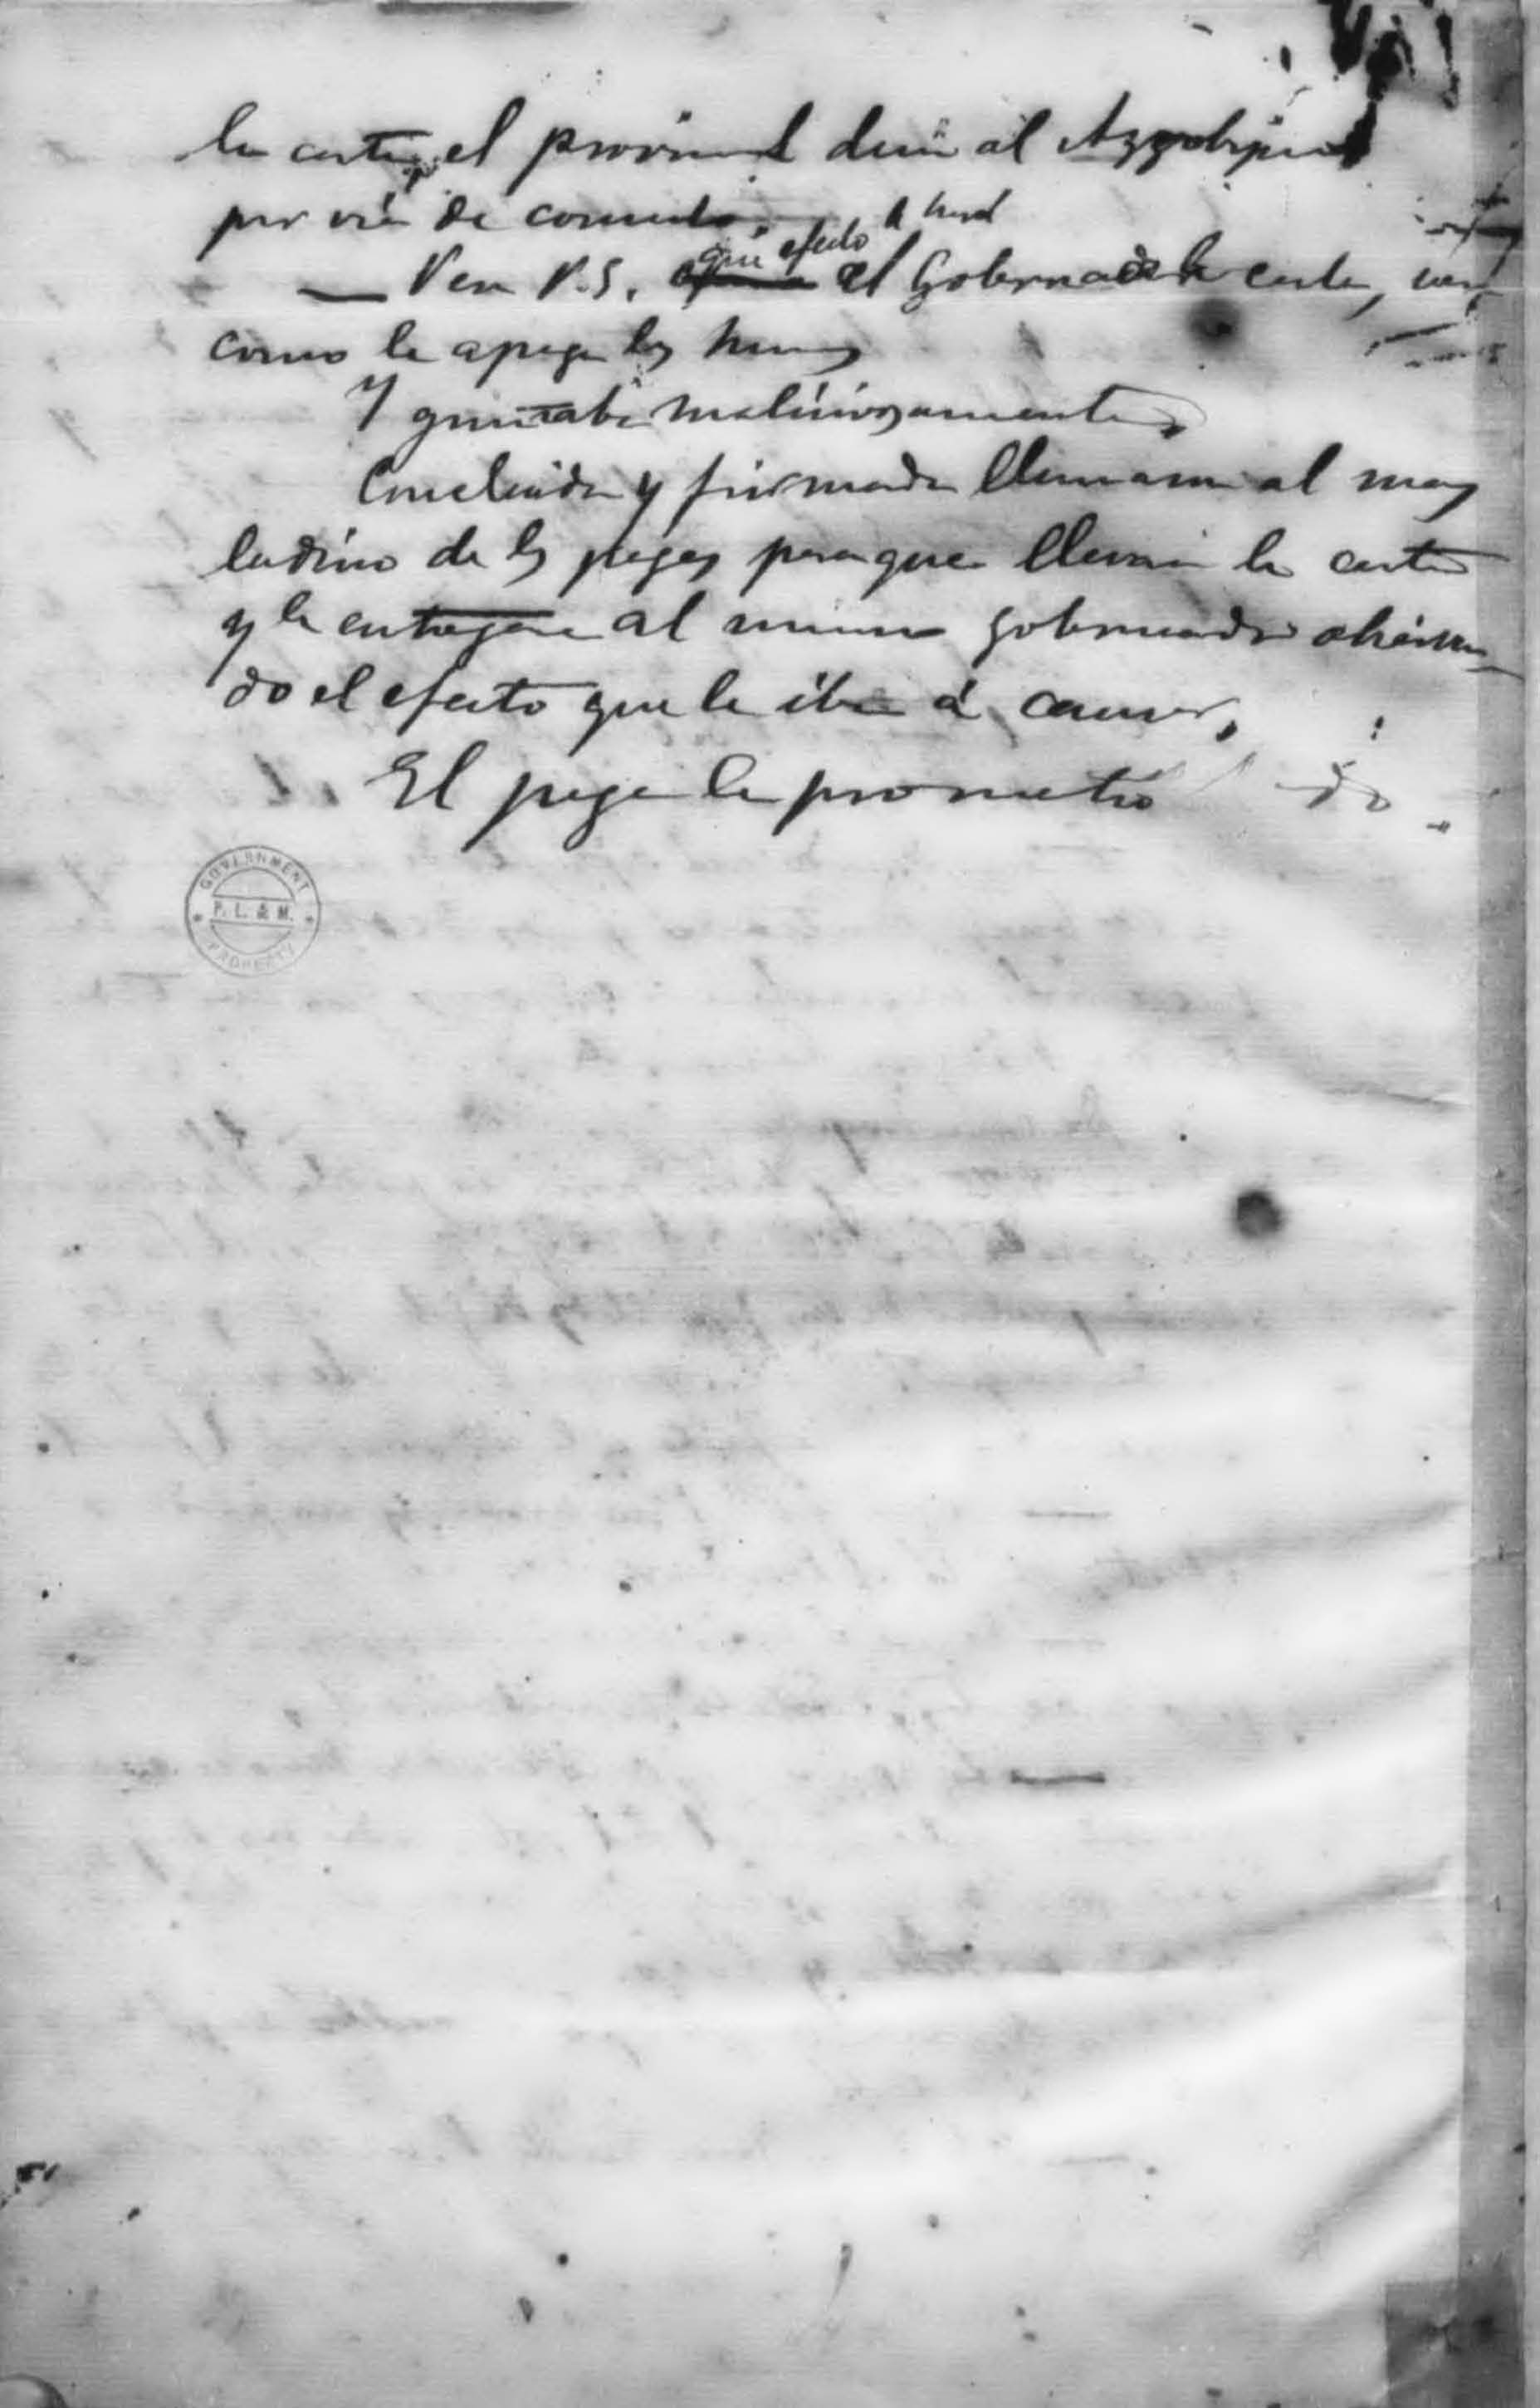 la carta, el provincial decía al Arzobispo
por vía de consuelo.
qué efecto le hará
— Vea V.S. al Gobernador la carta, verá
como le apaga los humos
Y guiñaba maliciosamente
Concluida y firmada llamaron al mas
ladino de los pages para que llevara la carta
y la entregara al mismo gobernador observan-
do el efecto que le iba á causar,
El page le prometió
GOVERNMENT
P. L. & M.
PROPERTY